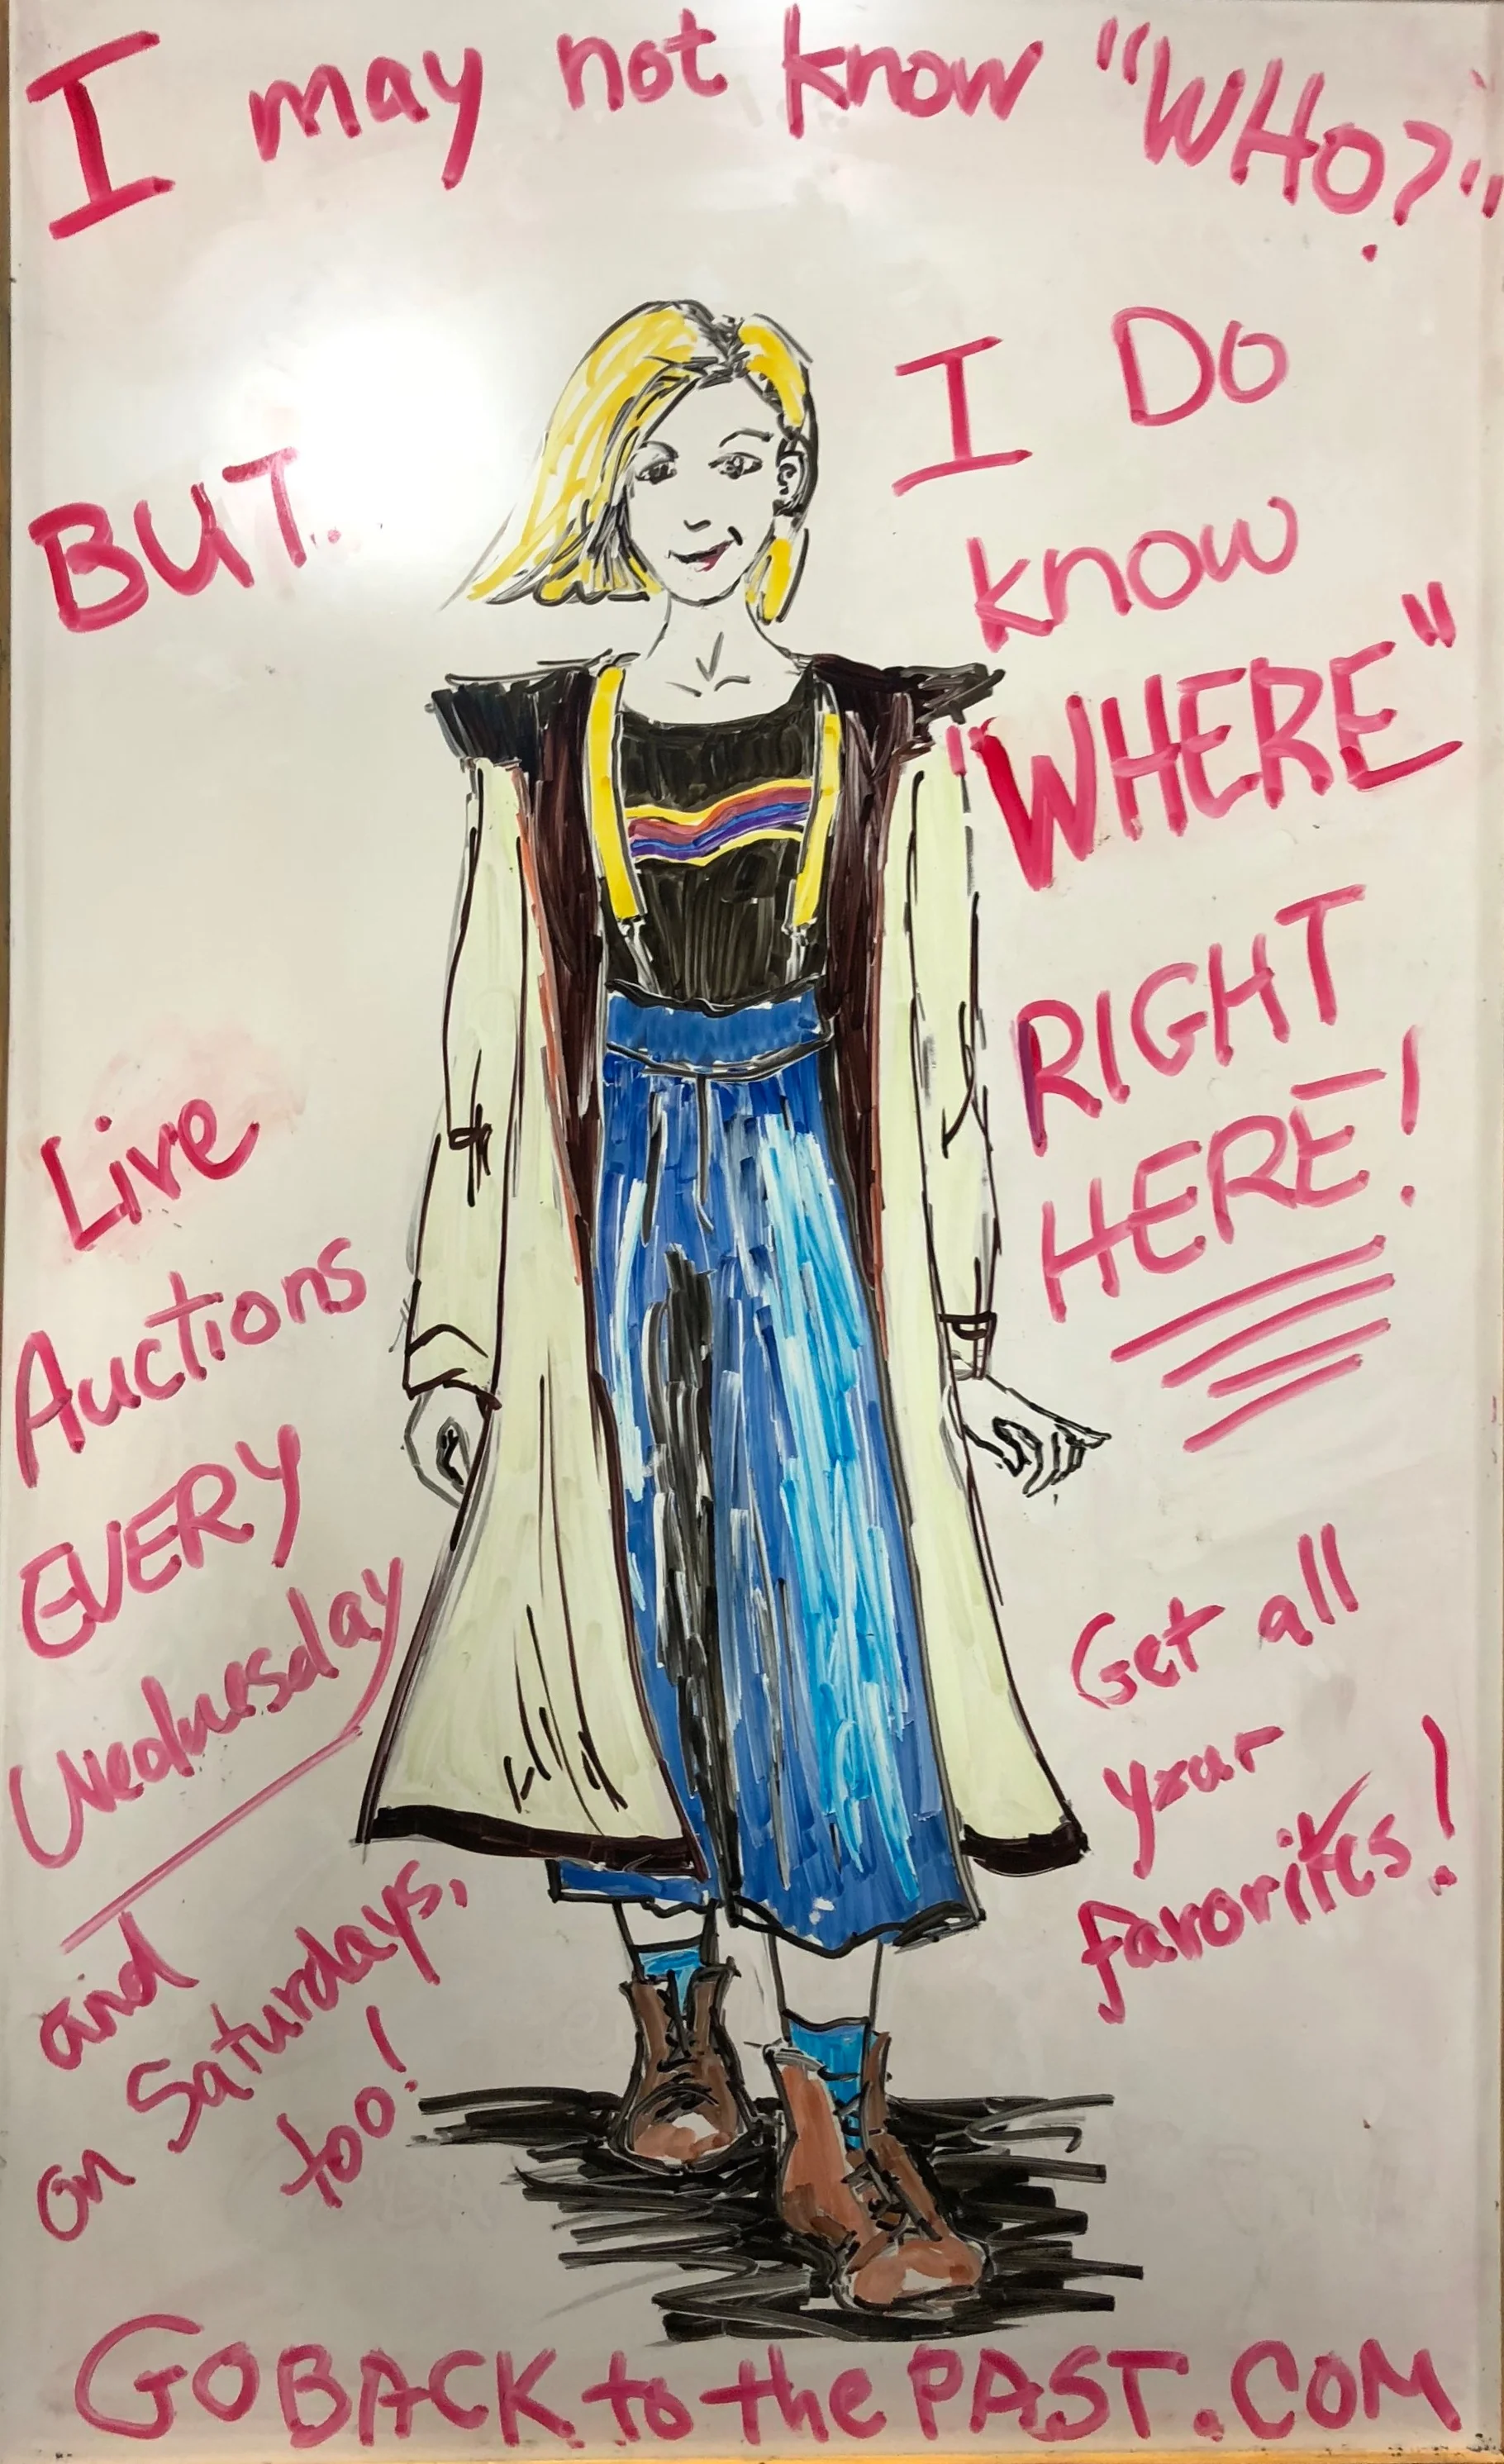 I may not know "WHO?"
BUT.
I DO
know
"WHERE"
RIGHT
HERE!
Live
Auctions
EVERY
Wednesday
and
on Saturdays,
too!
Get all
your
favorites!
GOBACK to the PAST.COM